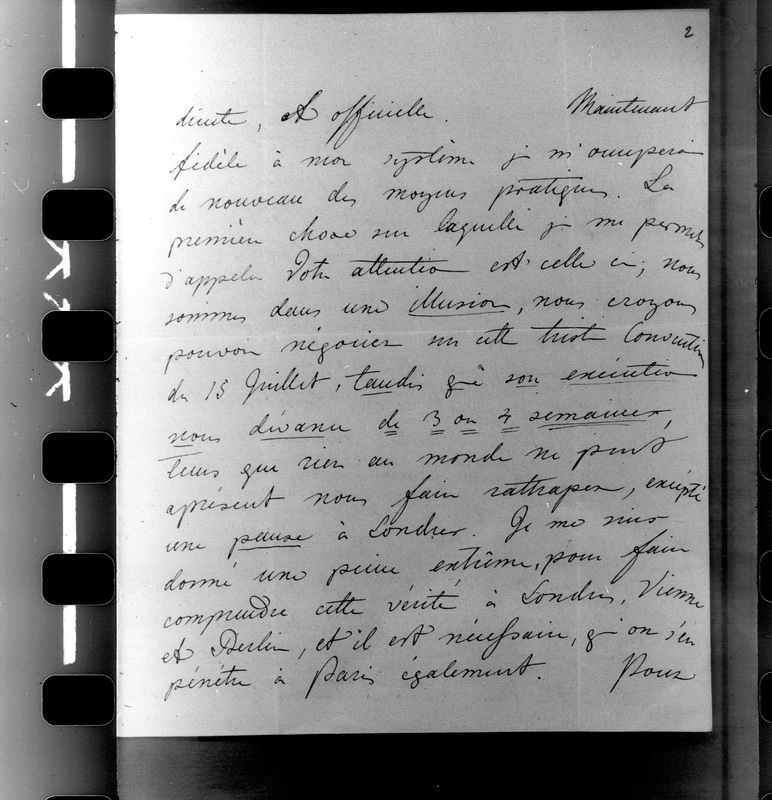 2
directe, et officielle. Maintenant
fidèle à mon système je m'occuperai
de nouveau des moyens pratiques. La
première chose sur laquelle je me permets
d'appeler Votre attention est celle ci; nous
sommes dans une illusion, nous croyons
pouvoir négocier sur cette triste Convention
du 15 Juillet, tandis que son exécution
nous dévance de 3 ou 4 semaines,
que rien au monde ne peut
aprésent nous faire rattraper, excepté
une pause à Londres. Je me suis
donné une peine extrême, pour faire
comprendre cette vérité à Londres, Vienne
et Berlin, et il est nécessaire, qu'on s'en
pénètre à Paris également. Pour